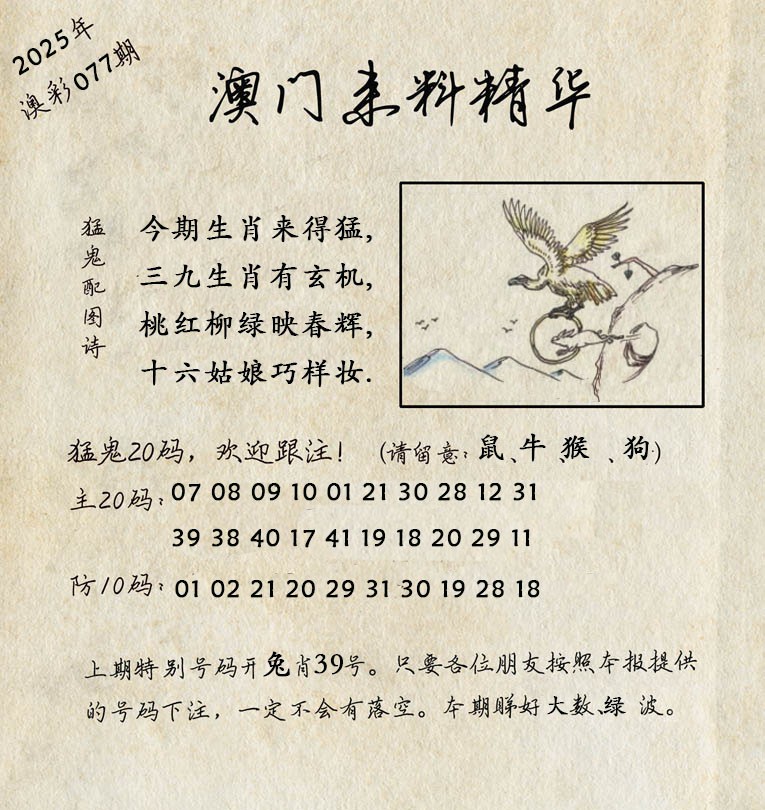 2025年
澳彩077期
澳门来料精华
猛鬼配图诗
今期生肖来得猛,
三九生肖有玄机,
桃红柳绿映春辉,
十六姑娘巧样妆.
猛鬼20码，欢迎跟注！（请留意：鼠、牛、猴、狗）
主20码：07 08 09 10 01 21 30 28 12 31
39 38 40 17 41 19 18 20 29 11
防10码：01 02 21 20 29 31 30 19 28 18
上期特别号码开兔肖39号。只要各位朋友按照本报提供
的号码下注，一定不会有落空。本期睇好大数、绿 波。